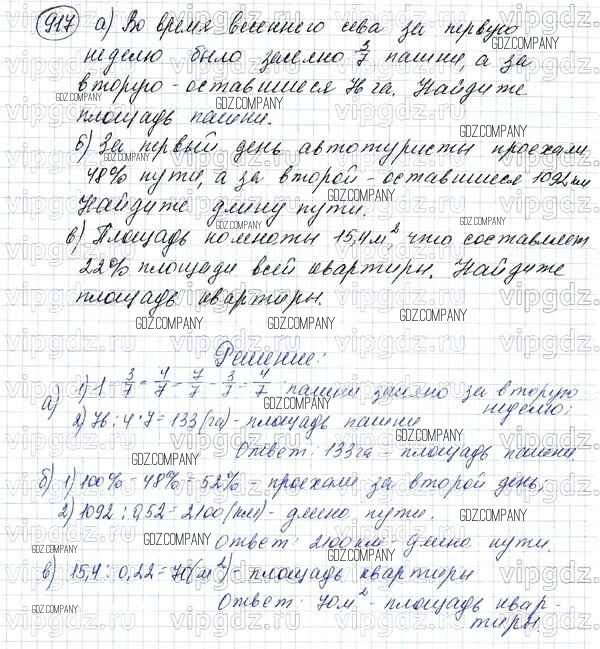 917 а) Во время весеннего сева за первую
неделю было засеяно 3/7 пашни, а за
вторую - оставшиеся 76 га. Найдите
площадь пашни.
б) За первый день автотуристы проехали
48% пути, а за второй - оставшиеся 1092 км
Найдите длину пути.
в) Площадь комнаты 15,4 м², что составляет
22% площади всей квартиры. Найдите
площадь квартиры.
Решение:
а) 1) 1 - 3/7 = 7/7 - 3/7 = 4/7 пашни засеяно за вторую
неделю;
2) 76 : 4 · 7 = 133 (га) - площадь пашни
Ответ: 133 га - площадь пашни.
б) 1) 100% - 48% = 52% - проехали за второй день;
2) 1092 : 0,52 = 2100 (км) - длина пути.
Ответ: 2100 км - длина пути.
в) 15,4 : 0,22 = 70 (м²) - площадь квартиры
Ответ: 70 м² - площадь квар-
тиры.
GDZ.COMPANY
vipgdz.ru